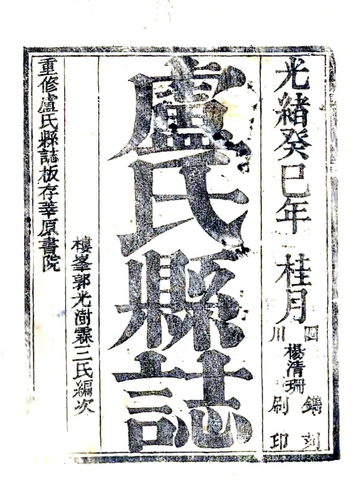 光緒癸巳年 桂月
四川
楊清珊
鐫刻刷印
盧氏縣誌
樓峯郭光澍霖三氏編次
重修盧氏縣誌板存莘原書院